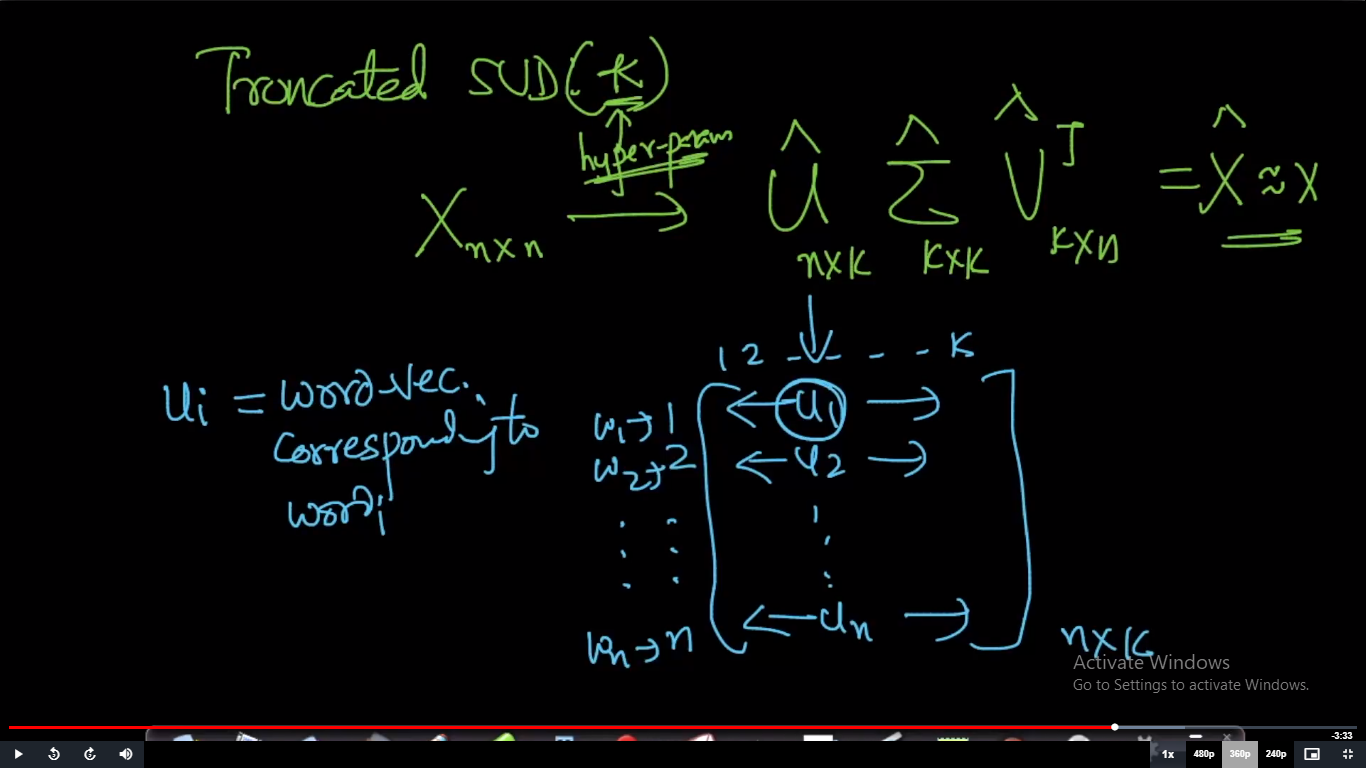 Truncated SVD(k)
hyper-param
X n×n → Û n×k Σ̂ k×k V̂ᵀ k×n = X̂ ≈ X
1 2 - - - - k
ui = word-vec. corresponding to wordi
w1 → 1 ← u1 →
w2 → 2 ← u2 →
wn → n ← un →
n×k
Activate Windows
Go to Settings to activate Windows.
-3:33
5 5 1x 480p 360p 240p